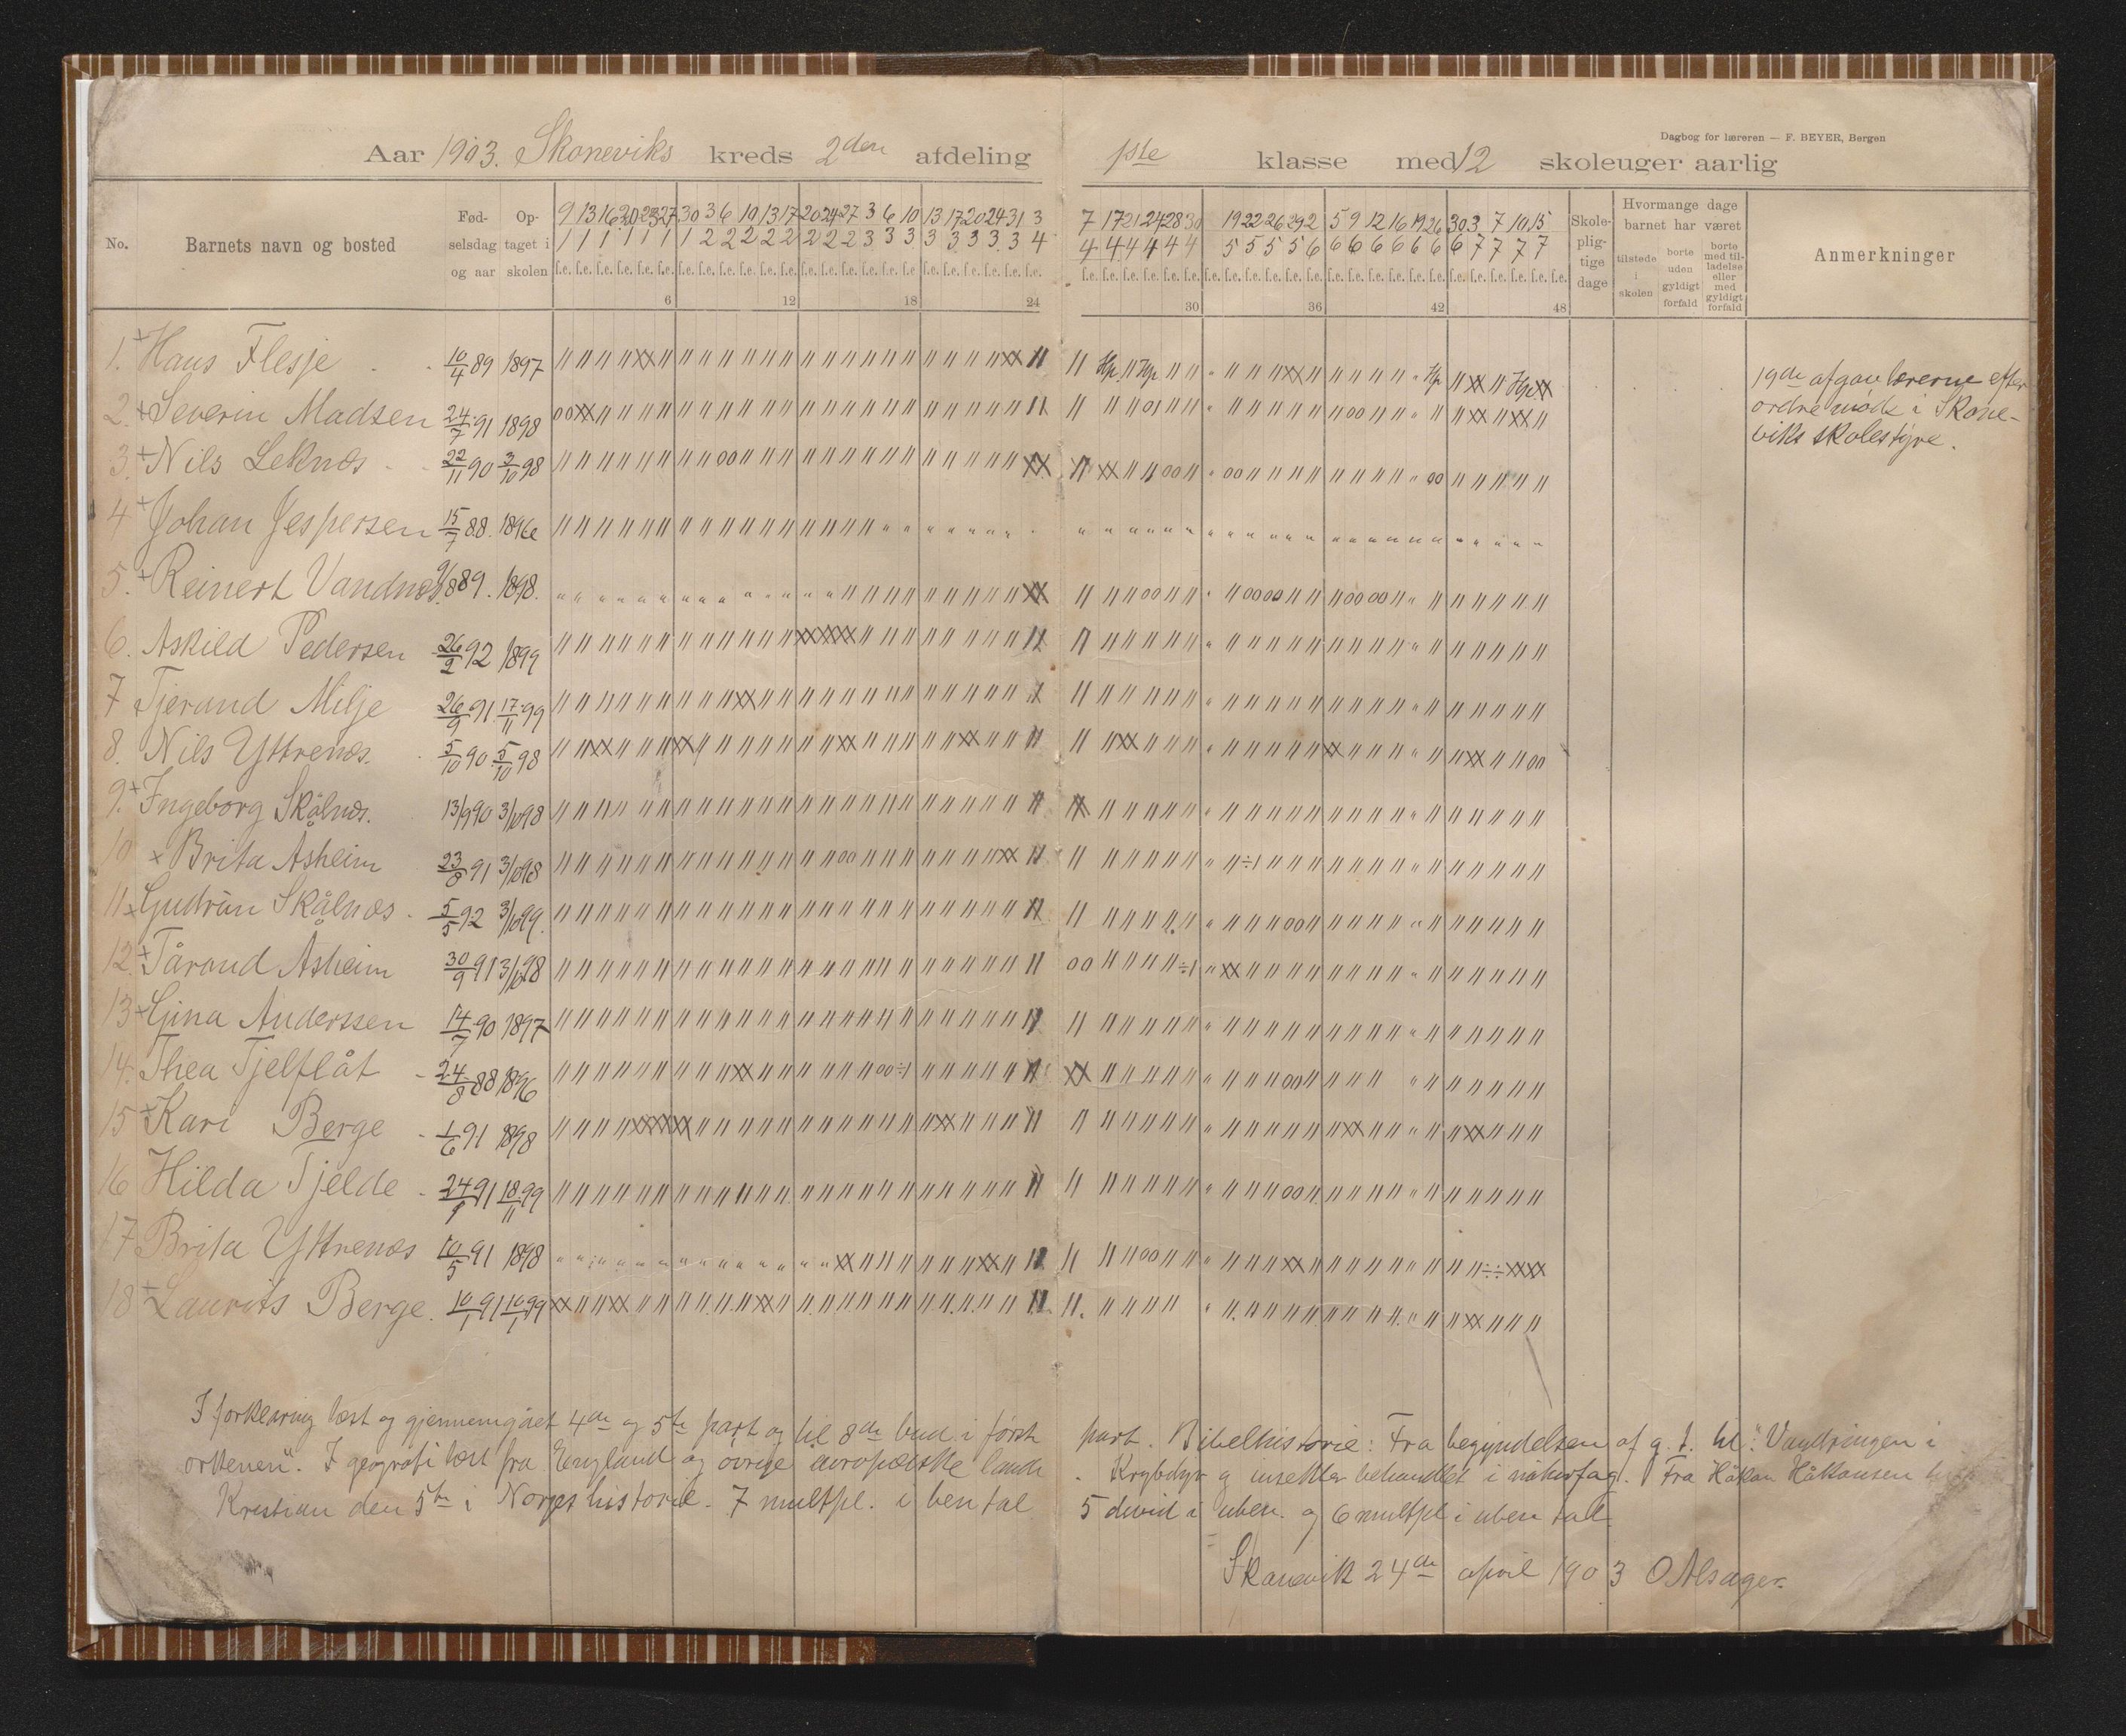 Dagbog for læreren — F. BEYER, Bergen
Aar 1903. Skoneviks kreds 2den afdeling 1ste klasse med 12 skoleuger aarlig
No. Barnets navn og bosted Fød-selsdag og aar Op-taget i skolen Skole-plig-tige dage Hvormange dage barnet har været tilstede i skolen borte uden gyldigt forfald borte med til-ladelse eller med gyldigt forfald Anmerkninger
9 13 16 20 23 27 30 3 6 10 13 17 20 24 27 3 6 10 13 17 20 24 31 3 7 17 21 24 28 30 19 22 26 29 2 5 9 12 16 19 26 30 3 7 10 15
1 1 1 1 1 1 1 2 2 2 2 2 2 2 2 3 3 3 3 3 3 3 3 4 4 4 4 4 4 4 5 5 5 5 6 6 6 6 6 6 6 6 7 7 7 7
6 12 18 24 30 36 42 48
1. Hans Flesje 10/4 89 1897
2. Severin Madsen 24/7 91 1898
3. Nils Leknes 22/11 90 3/10 98
4 Johan Jespersen 15/7 88. 1896
5. Reinert Vandnes 9/8 89. 1898.
6. Askild Pedersen 26/2 92 1899
7 Tjerand Milje 26/9 91. 17/11 99
8. Nils Yttrenæs. 5/10 90 5/10 98
9. Ingeborg Skålnæs. 13/9 90 3/10 98
10 Brita Asheim 23/8 91 3/10 98
11 Gudrun Skålnæs. 5/5 92 3/10 99.
12. Tårand Asheim 30/9 91 3/10 98
13 Gina Anderssen 14/7 90 1897
14. Thea Tjelflåt 24/8 88 1896
15 Kari Berge 1/6 91 1898
16 Hilda Tjelde 24/9 91 18/11 99
17 Brita Yttrenæs 10/5 91 1898
18 Laurits Berge. 10/1 91 10/1 99
19de afgav lærerne efter
ordre møde i Skone-
viks skolestyre.
I forklaring læst og gjennemgået 4de og 5te part og til 8de bud i første part. Bibelhistorie: Fra begyndelsen af g. t. til: "Vandringen i
ørkenen". I geografi læst fra England og øvrige europæiske lande. Krybdyr og insekter behandlet i naturfag. Fra Håkon Håkonsen
Kristian den 5te i Norges historie. 7 multpl. i ben tal 5 divid i uben. og 6 multpl i uben tal
Skonevik 24de april 1903 O Alsager.